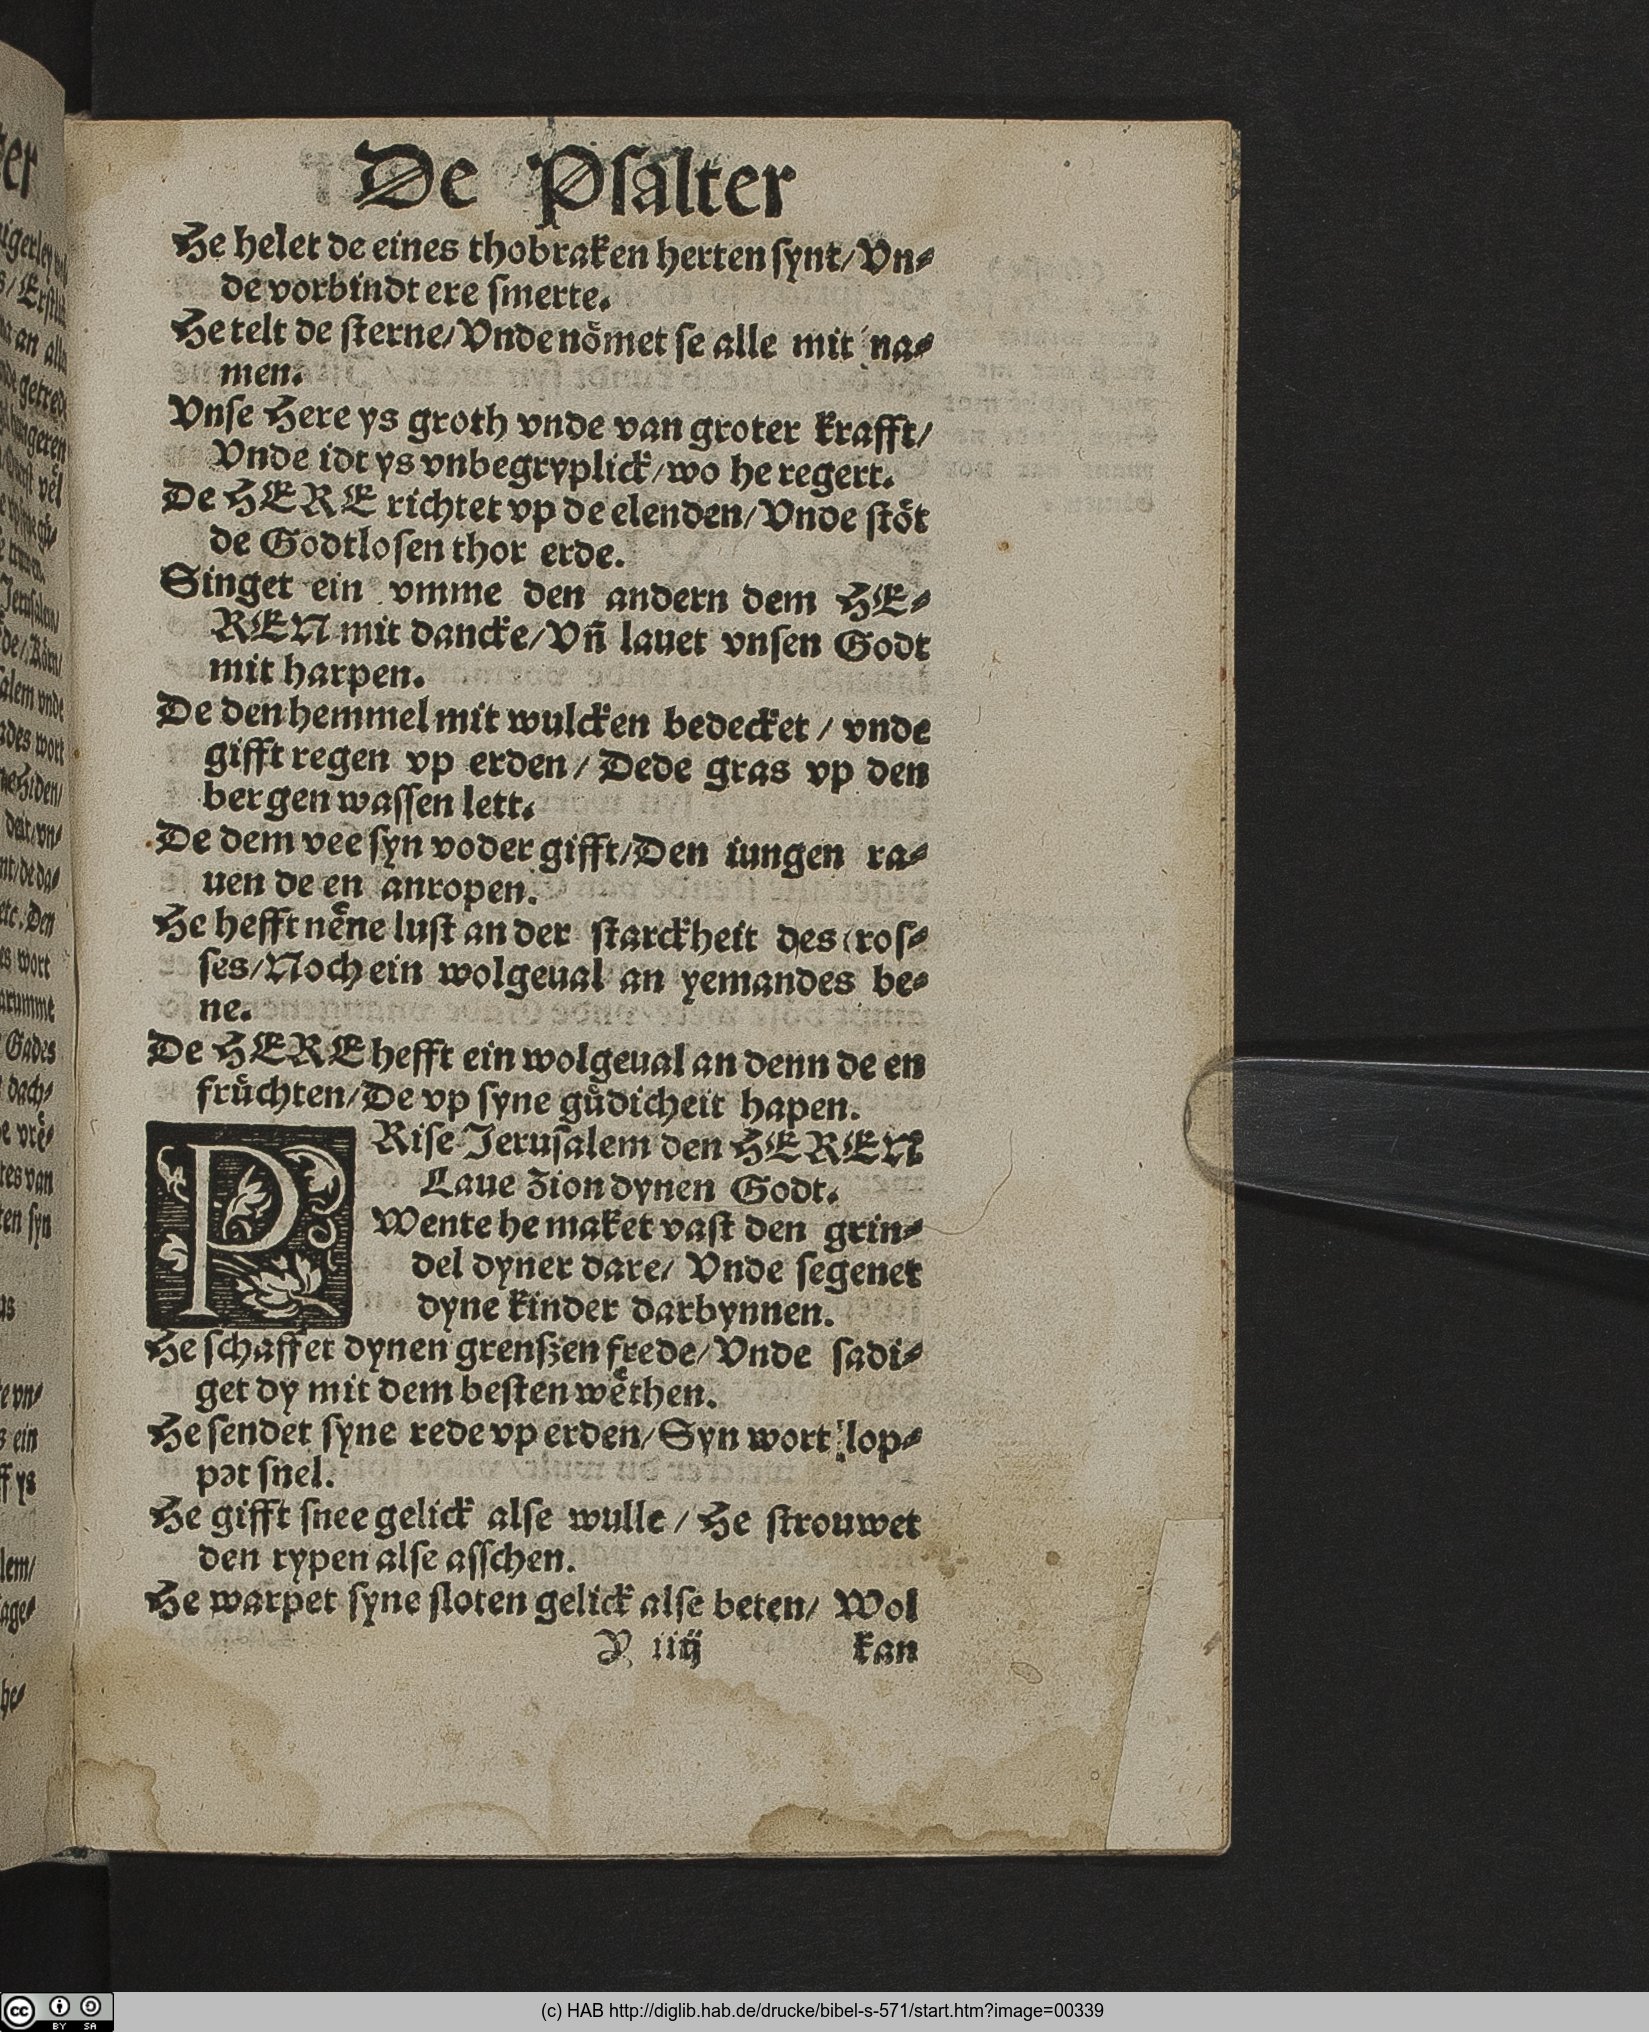 De Psalter
He helet de eines thobraken herten synt/ Vn⸗
de vorbindt ere smerte.
He telt de sterne/ Vnde noͤmet se alle mit na⸗
men.
Vnse Here ys groth vnde van groter krafft/
Vnde idt ys vnbegryplick/ wo he regert.
De HERE richtet vp de elenden/ Vnde stoͤt
de Godtlosen thor erde.
Singet ein vmme den andern dem HE⸗
REN mit dancke/ Vn̄ lauet vnsen Godt
mit harpen.
De den hemmel mit wulcken bedecket / vnde
gifft regen vp erden / Dede gras vp den
bergen wassen lett.
De dem vee syn voder gifft/ Den iungen ra⸗
uen de en anropen.
He hefft neͤne lust an der starckheit des ros⸗
ses/ Noch ein wolgeual an yemandes be⸗
ne.
De HERE hefft ein wolgeual an denn de en
fruͤchten/ De vp syne guͤdicheit hapen.
PRise Jerusalem den HEREN
Laue Zion dynen Godt.
Wente he maket vast den grin⸗
del dyner dare/ Vnde segenet
dyne kinder darbynnen.
He schaffet dynen grenszen frede/ Vnde sadi⸗
get dy mit dem besten weͤthen.
He sendet syne rede vp erden/ Syn wort lop⸗
pət snel.
He gifft snee gelick alse wulle / He strouwet
den rypen alse asschen.
He warpet syne sloten gelick alse beten/ Wol
Y iiij kan
(c) HAB http://diglib.hab.de/drucke/bibel-s-571/start.htm?image=00339
cc BY SA